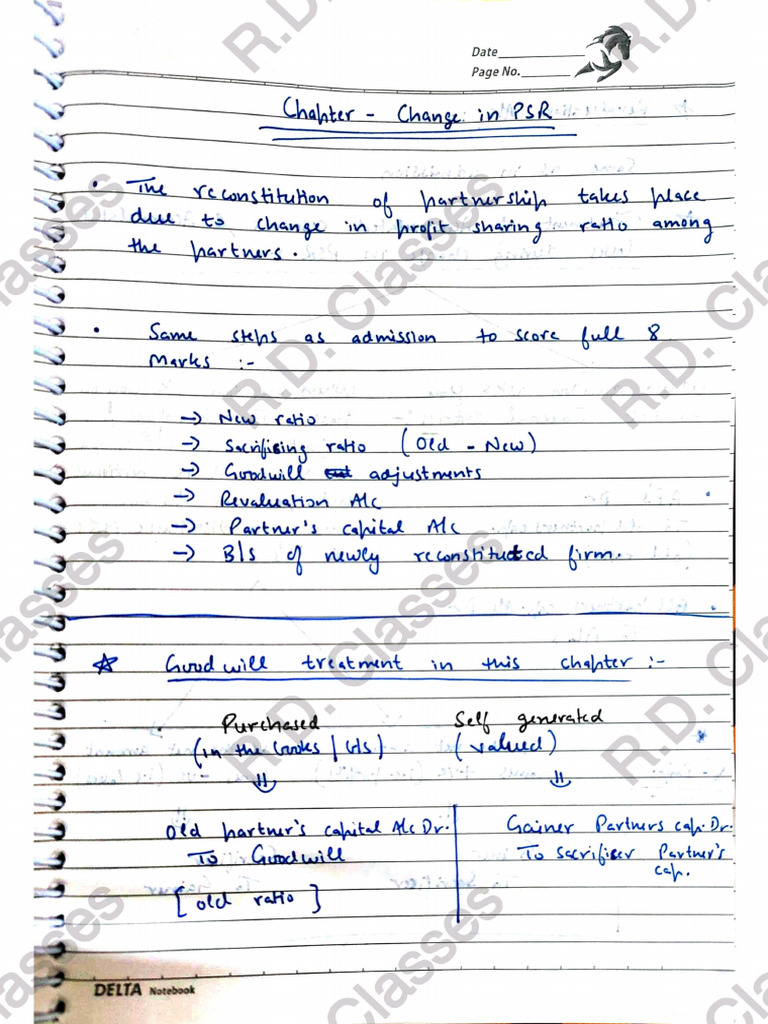 Date
Page No.
Chapter - Change in PSR
• The reconstitution of partnership takes place
due to change in profit sharing ratio among
the partners.
• Same steps as admission to score full 8
Marks :-
→ New ratio
→ Sacrificing ratio (Old - New)
→ Goodwill adjustments
→ Revaluation A/c
→ Partner's capital A/c
→ B/S of newly reconstituted firm.
☆ Goodwill treatment in this chapter :-
Purchased Self generated
(in the books / B/S) (valued)
⇓ ⇓
Old partner's capital A/c Dr. Gainer Partners cap. Dr.
To Goodwill To Sacrificer Partner's
cap.
[old ratio]
DELTA Notebook
R.D. Classes